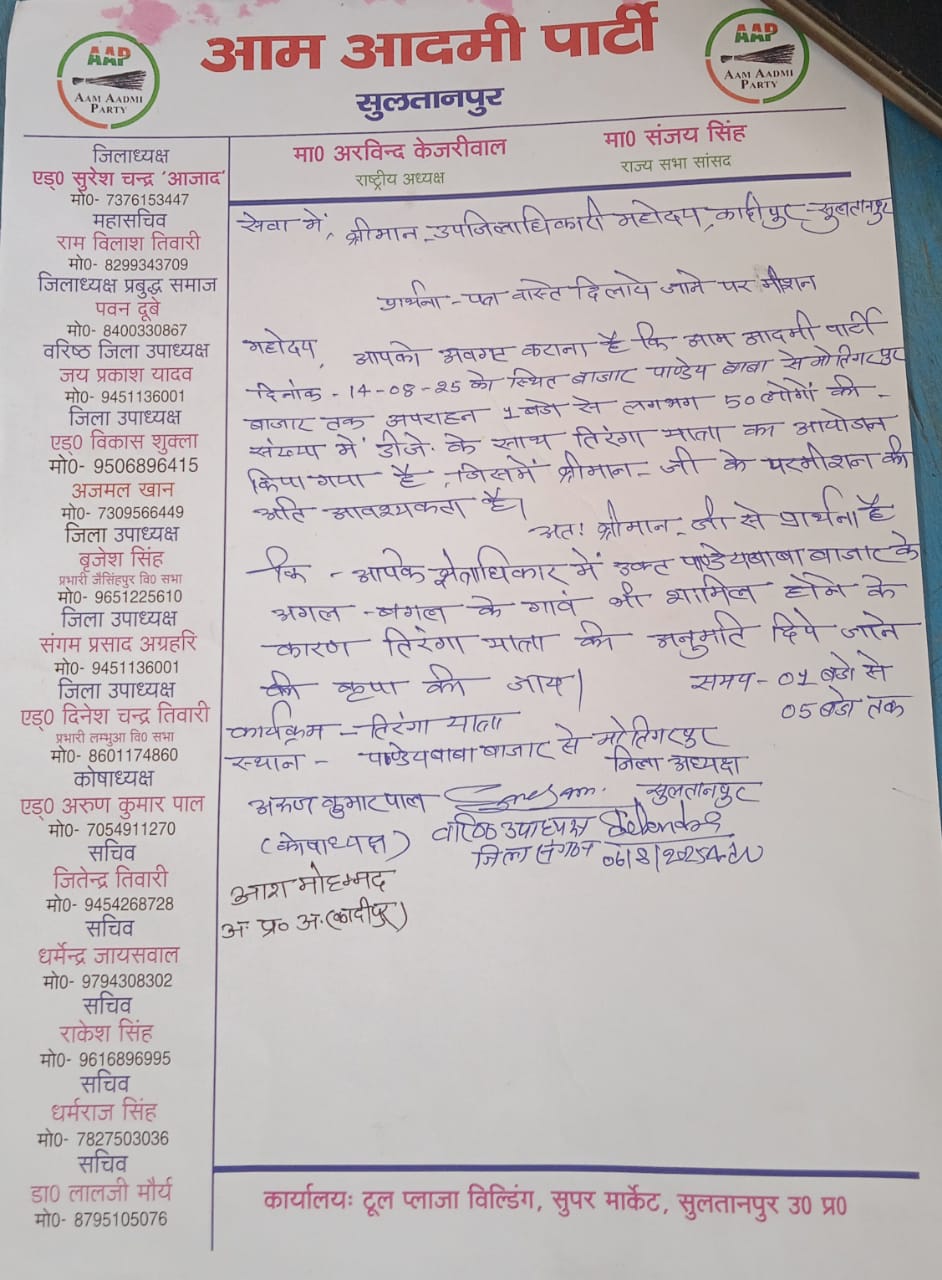 आम आदमी पार्टी
सुलतानपुर
AAP
AAM AADMI
PARTY
AAP
AAM AADMI
PARTY
मा0 अरविन्द केजरीवाल
राष्ट्रीय अध्यक्ष
मा0 संजय सिंह
राज्य सभा सांसद
जिलाध्यक्ष
एड्0 सुरेश चन्द्र 'आजाद'
मो0- 7376153447
महासचिव
राम विलाश तिवारी
मो0- 8299343709
जिलाध्यक्ष प्रबुद्ध समाज
पवन दूबे
मो0- 8400330867
वरिष्ठ जिला उपाध्यक्ष
जय प्रकाश यादव
मो0- 9451136001
जिला उपाध्यक्ष
एड्0 विकास शुक्ला
मो0- 9506896415
अजमल खान
मो0- 7309566449
जिला उपाध्यक्ष
बृजेश सिंह
प्रभारी जैसिंहपुर वि0 सभा
मो0- 9651225610
जिला उपाध्यक्ष
संगम प्रसाद अग्रहरि
मो0- 9451136001
जिला उपाध्यक्ष
एड्0 दिनेश चन्द्र तिवारी
प्रभारी लम्भुआ वि0 सभा
मो0- 8601174860
कोषाध्यक्ष
एड्0 अरुण कुमार पाल
मो0- 7054911270
सचिव
जितेन्द्र तिवारी
मो0- 9454268728
सचिव
धर्मेन्द्र जायसवाल
मो0- 9794308302
सचिव
राकेश सिंह
मो0- 9616896995
सचिव
धर्मराज सिंह
मो0- 7827503036
सचिव
डा0 लालजी मौर्य
मो0- 8795105076
सेवा में, श्रीमान उपजिलाधिकारी महोदय, कादीपुर - सुलतानपुर
प्रार्थना - पत्र वास्ते दिलाये जाने पर मीशन
महोदय, आपको अवगत कराना है कि आम आदमी पार्टी
दिनांक - 14-08-25 को स्थित बाजार पाण्डेय बाबा से मोतिगरपुर
बाजार तक अपराहन 1 बजे से लगभग 50 लोगों की -
संख्या में डीजे. के साथ तिरंगा यात्रा का आयोजन
किया गया है, जिसमें श्रीमान - जी के परमीशन की
अति आवश्यकता है।
अतः श्रीमान - जी से प्रार्थना है
कि - आपके क्षेत्राधिकार में उक्त पाण्डेयबाबा बाजार के
अगल - बगल के गावं भी शामिल होने के
कारण तिरंगा यात्रा की अनुमति दिये जाने
की कृपा की जाय।
समय - 01 बजे से
05 बजे तक
कार्यक्रम - तिरंगा यात्रा
स्थान - पाण्डेयबाबा बाजार से मोतिगरपुर
जिला अध्यक्ष
सुलतानपुर
अरुण कुमार पाल
(कोषाध्यक्ष)
वरिष्ठ उपाध्यक्ष
जिला संगठन 06/8/2025
आश मोहम्मद
अ. प्र० अ. (कादीपुर)
कार्यालयः टूल प्लाजा विल्डिंग, सुपर मार्केट, सुलतानपुर उ0 प्र0